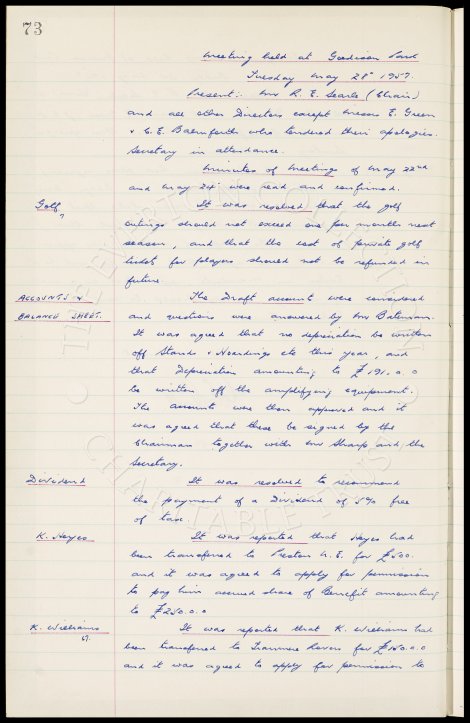 73
Meeting held at Goodison Park
Tuesday May 28th 1957.
Present:- Mr R. E. Searle (Chair)
and all other Directors except Messrs E. Green
& C. E. Balmforth who tendered their apologies.
Secretary in attendance.
Minutes of meetings of May 22nd
and May 24th were read and confirmed.
Golf
It was resolved that the golf
outings should not exceed one per month next
season, and that the cost of private golf
tickets for players should not be refunded in
future.
ACCOUNTS &
BALANCE SHEET.
The Draft accounts were considered
and questions were answered by Mr Bateman.
It was agreed that no depreciation be written
off Stands & Hoardings etc this year, and
that Depreciation amounting to £191.0.0
be written off the amplifying equipment.
The accounts were then approved and it
was agreed that these be signed by the
Chairman together with Mr Sharp and the
Secretary.
Dividend
It was resolved to recommend
the payment of a Dividend of 5% free
of tax.
K. Hayes
It was reported that Hayes had
been transferred to Preston N.E. for £500.
and it was agreed to apply for permission
to pay him accrued share of Benefit amounting
to £250.0.0
K. Williams
It was reported that K. Williams had
been transferred to Tranmere Rovers for £150.0.0
and it was agreed to apply for permission to
THE EVERTON COLLECTION
CHARITABLE TRUST